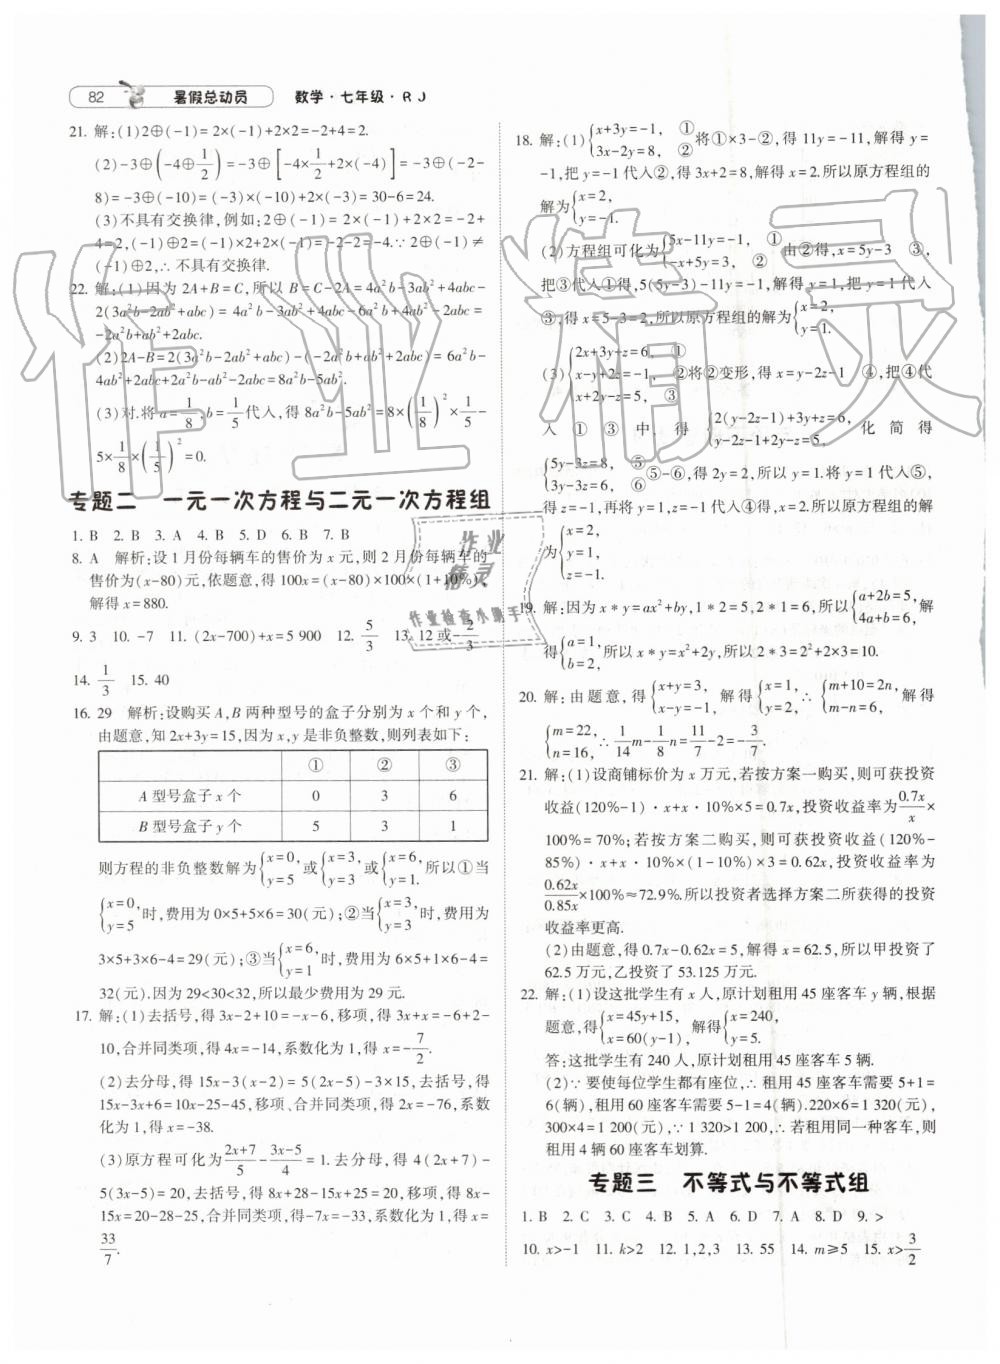 82 暑假总动员 数学·七年级·RJ
21. 解:(1)2⊕(-1)=2×(-1)+2×2=-2+4=2.
(2)-3⊕(-4⊕1/2)=-3⊕[-4×1/2+2×(-4)]=-3⊕(-2-
8)=-3⊕(-10)=(-3)×(-10)+2×(-3)=30-6=24.
(3)不具有交换律,例如:2⊕(-1)=2×(-1)+2×2=-2+
4=2,(-1)⊕2=(-1)×2+2×(-1)=-2-2=-4.∵2⊕(-1)≠
(-1)⊕2,∴不具有交换律.
22. 解:(1)因为2A+B=C,所以B=C-2A=4a²b-3ab²+4abc-
2(3a²b-2ab²+abc)=4a²b-3ab²+4abc-6a²b+4ab²-2abc=
-2a²b+ab²+2abc.
(2)2A-B=2(3a²b-2ab²+abc)-(-2a²b+ab²+2abc)=6a²b-
4ab²+2abc+2a²b-ab²-2abc=8a²b-5ab².
(3)对.将a=1/8,b=1/5代入,得8a²b-5ab²=8×(1/8)²×1/5-
5×1/8×(1/5)²=0.
专题二 一元一次方程与二元一次方程组
1. B 2. B 3. A 4. B 5. D 6. B 7. B
8. A 解析:设1月份每辆车的售价为x元,则2月份每辆车的
售价为(x-80)元,依题意,得100x=(x-80)×100×(1+10%),
解得x=880.
9. 3 10. -7 11. (2x-700)+x=5 900 12. 5/3 13. 12或-2/3
14. 1/3 15. 40
16. 29 解析:设购买A,B两种型号的盒子分别为x个和y个,
由题意,知2x+3y=15,因为x,y是非负整数,则列表如下:
① ② ③
A型号盒子x个 0 3 6
B型号盒子y个 5 3 1
则方程的非负整数解为{x=0, y=5 或{x=3, y=3 或{x=6, y=1. 所以①当
{x=0, y=5 时,费用为0×5+5×6=30(元);②当{x=3, y=3 时,费用为
3×5+3×6-4=29(元);③当{x=6, y=1 时,费用为6×5+1×6-4=
32(元).因为29<30<32,所以最少费用为29元.
17. 解:(1)去括号,得3x-2+10=-x-6,移项,得3x+x=-6+2-
10,合并同类项,得4x=-14,系数化为1,得x=-7/2.
(2)去分母,得15x-3(x-2)=5(2x-5)-3×15,去括号,得
15x-3x+6=10x-25-45,移项、合并同类项,得2x=-76,系数
化为1,得x=-38.
(3)原方程可化为(2x+7)/5-(3x-5)/4=1.去分母,得4(2x+7)-
5(3x-5)=20,去括号,得8x+28-15x+25=20,移项,得8x-
15x=20-28-25,合并同类项,得-7x=-33,系数化为1,得x=
33/7.
18. 解:(1){x+3y=-1, ① 3x-2y=8, ② 将①×3-②,得11y=-11,解得y=
-1,把y=-1代入②,得3x+2=8,解得x=2.所以原方程组的
解为{x=2, y=-1.
(2)方程组可化为{5x-11y=-1, ① -x+5y=3, ② 由②得,x=5y-3 ③,
把③代入①得,5(5y-3)-11y=-1,解得y=1,把y=1代入
③,得x=5-3=2,所以原方程组的解为{x=2, y=1.
(3){2x+3y+z=6, ① x-y+2z=-1, ② x+2y-z=5, ③ 将②变形,得x=y-2z-1 ④,把④代
入①③中,得{2(y-2z-1)+3y+z=6, y-2z-1+2y-z=5, 化简得
{5y-3z=8, ⑤ 3y-3z=6, ⑥ ⑤-⑥,得2y=2,所以y=1.把y=1代入⑤,
得z=-1,再将y=1,z=-1代入④,得x=2,所以方程组的解
为{x=2, y=1, z=-1.
19. 解:因为x*y=ax²+by,1*2=5,2*1=6,所以{a+2b=5, 4a+b=6, 解
得{a=1, b=2, 所以x*y=x²+2y,所以2*3=2²+2×3=10.
20. 解:由题意,得{x+y=3, x-y=-1, 解得{x=1, y=2, ∴{m+10=2n, m-n=6, 解得
{m=22, n=16, ∴1/14m-1/8n=11/7-2=-3/7.
21. 解:(1)设商铺标价为x万元,若按方案一购买,则可获投资
收益(120%-1)·x+x·10%×5=0.7x,投资收益率为0.7x/x×
100%=70%;若按方案二购买,则可获投资收益(120%-
85%)·x+x·10%×(1-10%)×3=0.62x,投资收益率为
0.62x/0.85x×100%≈72.9%.所以投资者选择方案二所获得的投资
收益率更高.
(2)由题意,得0.7x-0.62x=5,解得x=62.5,所以甲投资了
62.5万元,乙投资了53.125万元.
22. 解:(1)设这批学生有x人,原计划租用45座客车y辆,根据
题意,得{x=45y+15, x=60(y-1), 解得{x=240, y=5.
答:这批学生有240人,原计划租用45座客车5辆.
(2)∵要使每位学生都有座位,∴租用45座客车需要5+1=
6(辆),租用60座客车需要5-1=4(辆).220×6=1 320(元),
300×4=1 200(元),∵1 320>1 200,∴若租用同一种客车,则
租用4辆60座客车划算.
专题三 不等式与不等式组
1. B 2. C 3. C 4. B 5. A 6. D 7. A 8. D 9. >
10. x>-1 11. k>2 12. 1,2,3 13. 55 14. m≥5 15. x>3/2
作业精灵
作业
精灵
作业检查小助手